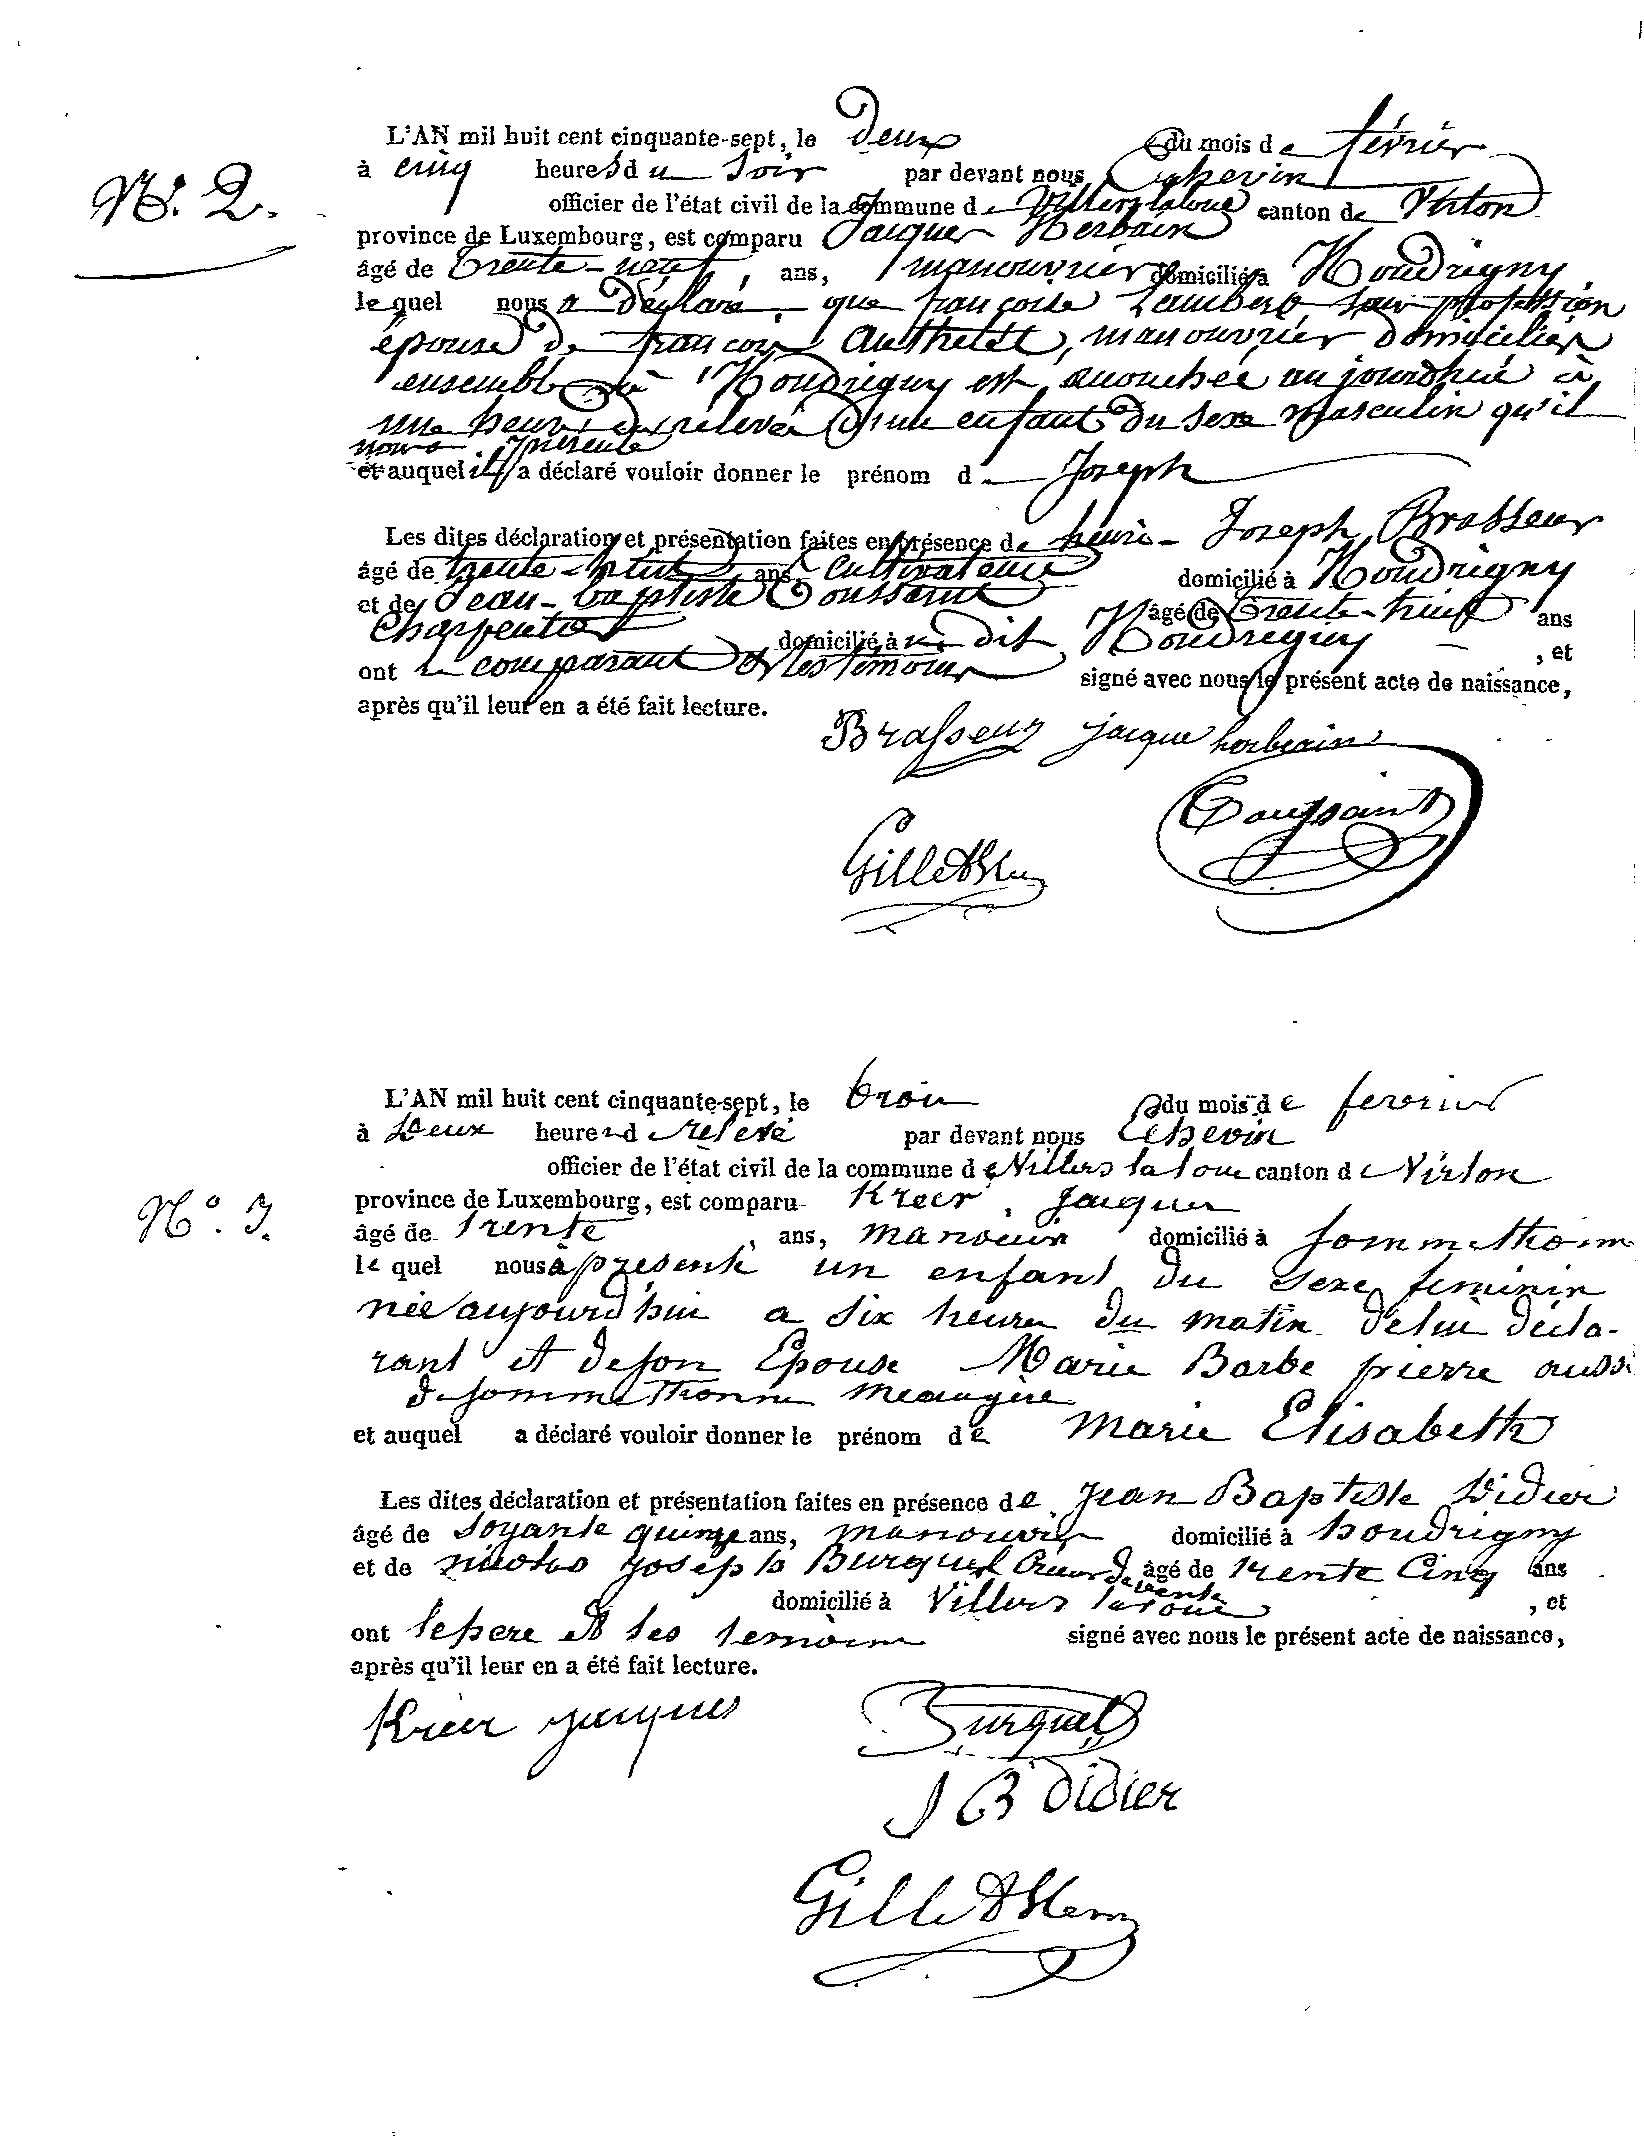 N°. 2.
L'AN mil huit cent cinquante-sept, le Deux du mois de février
à cinq heures du Soir par devant nous Echevin
officier de l'état civil de la commune de Villers la loue canton de Virton
province de Luxembourg, est comparu Jacques Herbain
âgé de trente-neuf, ans, manouvrier domicilié à Houdrigny
lequel nous a déclaré, que françoise Lambert, sans profession
épouse de françois Authelet, manouvrier domiciliés
ensemble à Houdrigny est accouchée aujourdhui à
une heure de relevée d'un enfant du sexe masculin qu'il
nous présente
et auquel il a déclaré vouloir donner le prénom de Joseph
Les dites déclaration et présentation faites en présence de henri-Joseph Brasseur
âgé de trente-huit ans, Cultivateur domicilié à Houdrigny
et de Jean-baptiste Toussaint âgé de trente-neuf ans
Charpentier domicilié à dit Houdrigny , et
ont le comparant et les témoins signé avec nous le présent acte de naissance,
après qu'il leur en a été fait lecture.
Brasseur jacque herbain
Toussaint
Gille
N°. 3.
L'AN mil huit cent cinquante-sept, le trois du mois de fevrier
à Deux heures de relevé par devant nous Echevin
officier de l'état civil de la commune de Villers la loue canton de Virton
province de Luxembourg, est comparu Krier, Jacques
âgé de trente, ans, manouvrier domicilié à Sommethonne
le quel nous à présenté un enfant du sexe feminin
née aujourd'hui a six heures du matin de lui décla-
rant et de son Epouse Marie Barbe pierre aussi
de Sommethonne menagère
et auquel a déclaré vouloir donner le prénom de Marie Elisabeth
Les dites déclaration et présentation faites en présence de Jean Baptiste Didier
âgé de soyante quinze ans, manouvrier domicilié à houdrigny
et de nicolas Joseph Burquel âgé de trente Cinq ans
domicilié à Villers la loue , et
ont le pere et les temoins signé avec nous le présent acte de naissance,
après qu'il leur en a été fait lecture.
Krier jacques Burquel
J B Didier
Gille